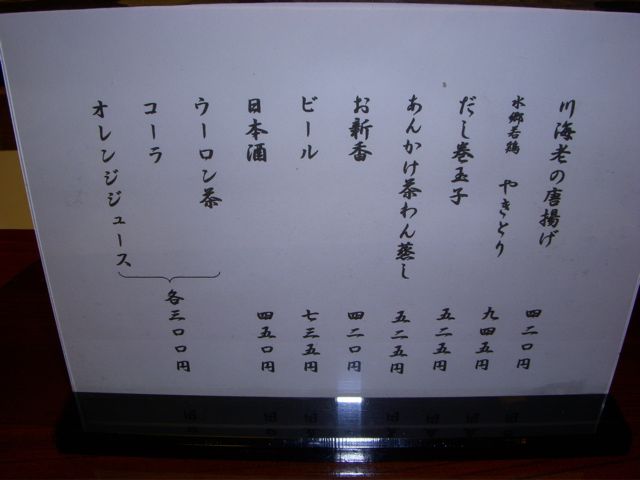 川海老の唐揚げ 四二〇円
水郷若鶏 やきとり 九四五円
だし巻玉子 五二五円
あんかけ茶わん蒸し 五二五円
お新香 四二〇円
ビール 七三五円
日本酒 四五〇円
ウーロン茶
コーラ
オレンジジュース
各三〇〇円